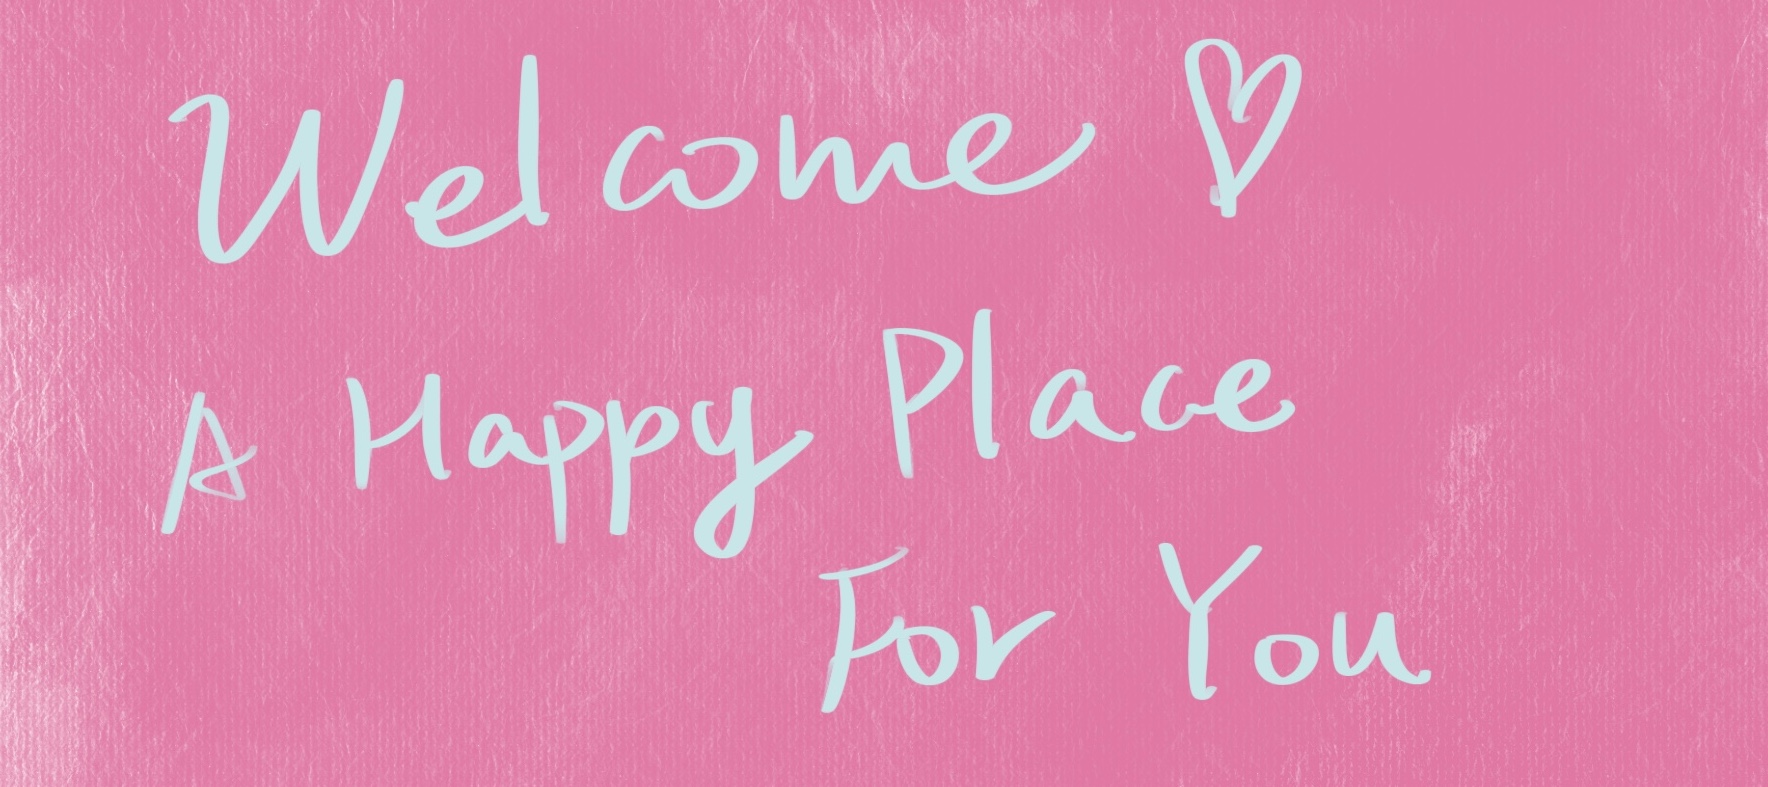 Welcome ♡
A Happy Place
For You